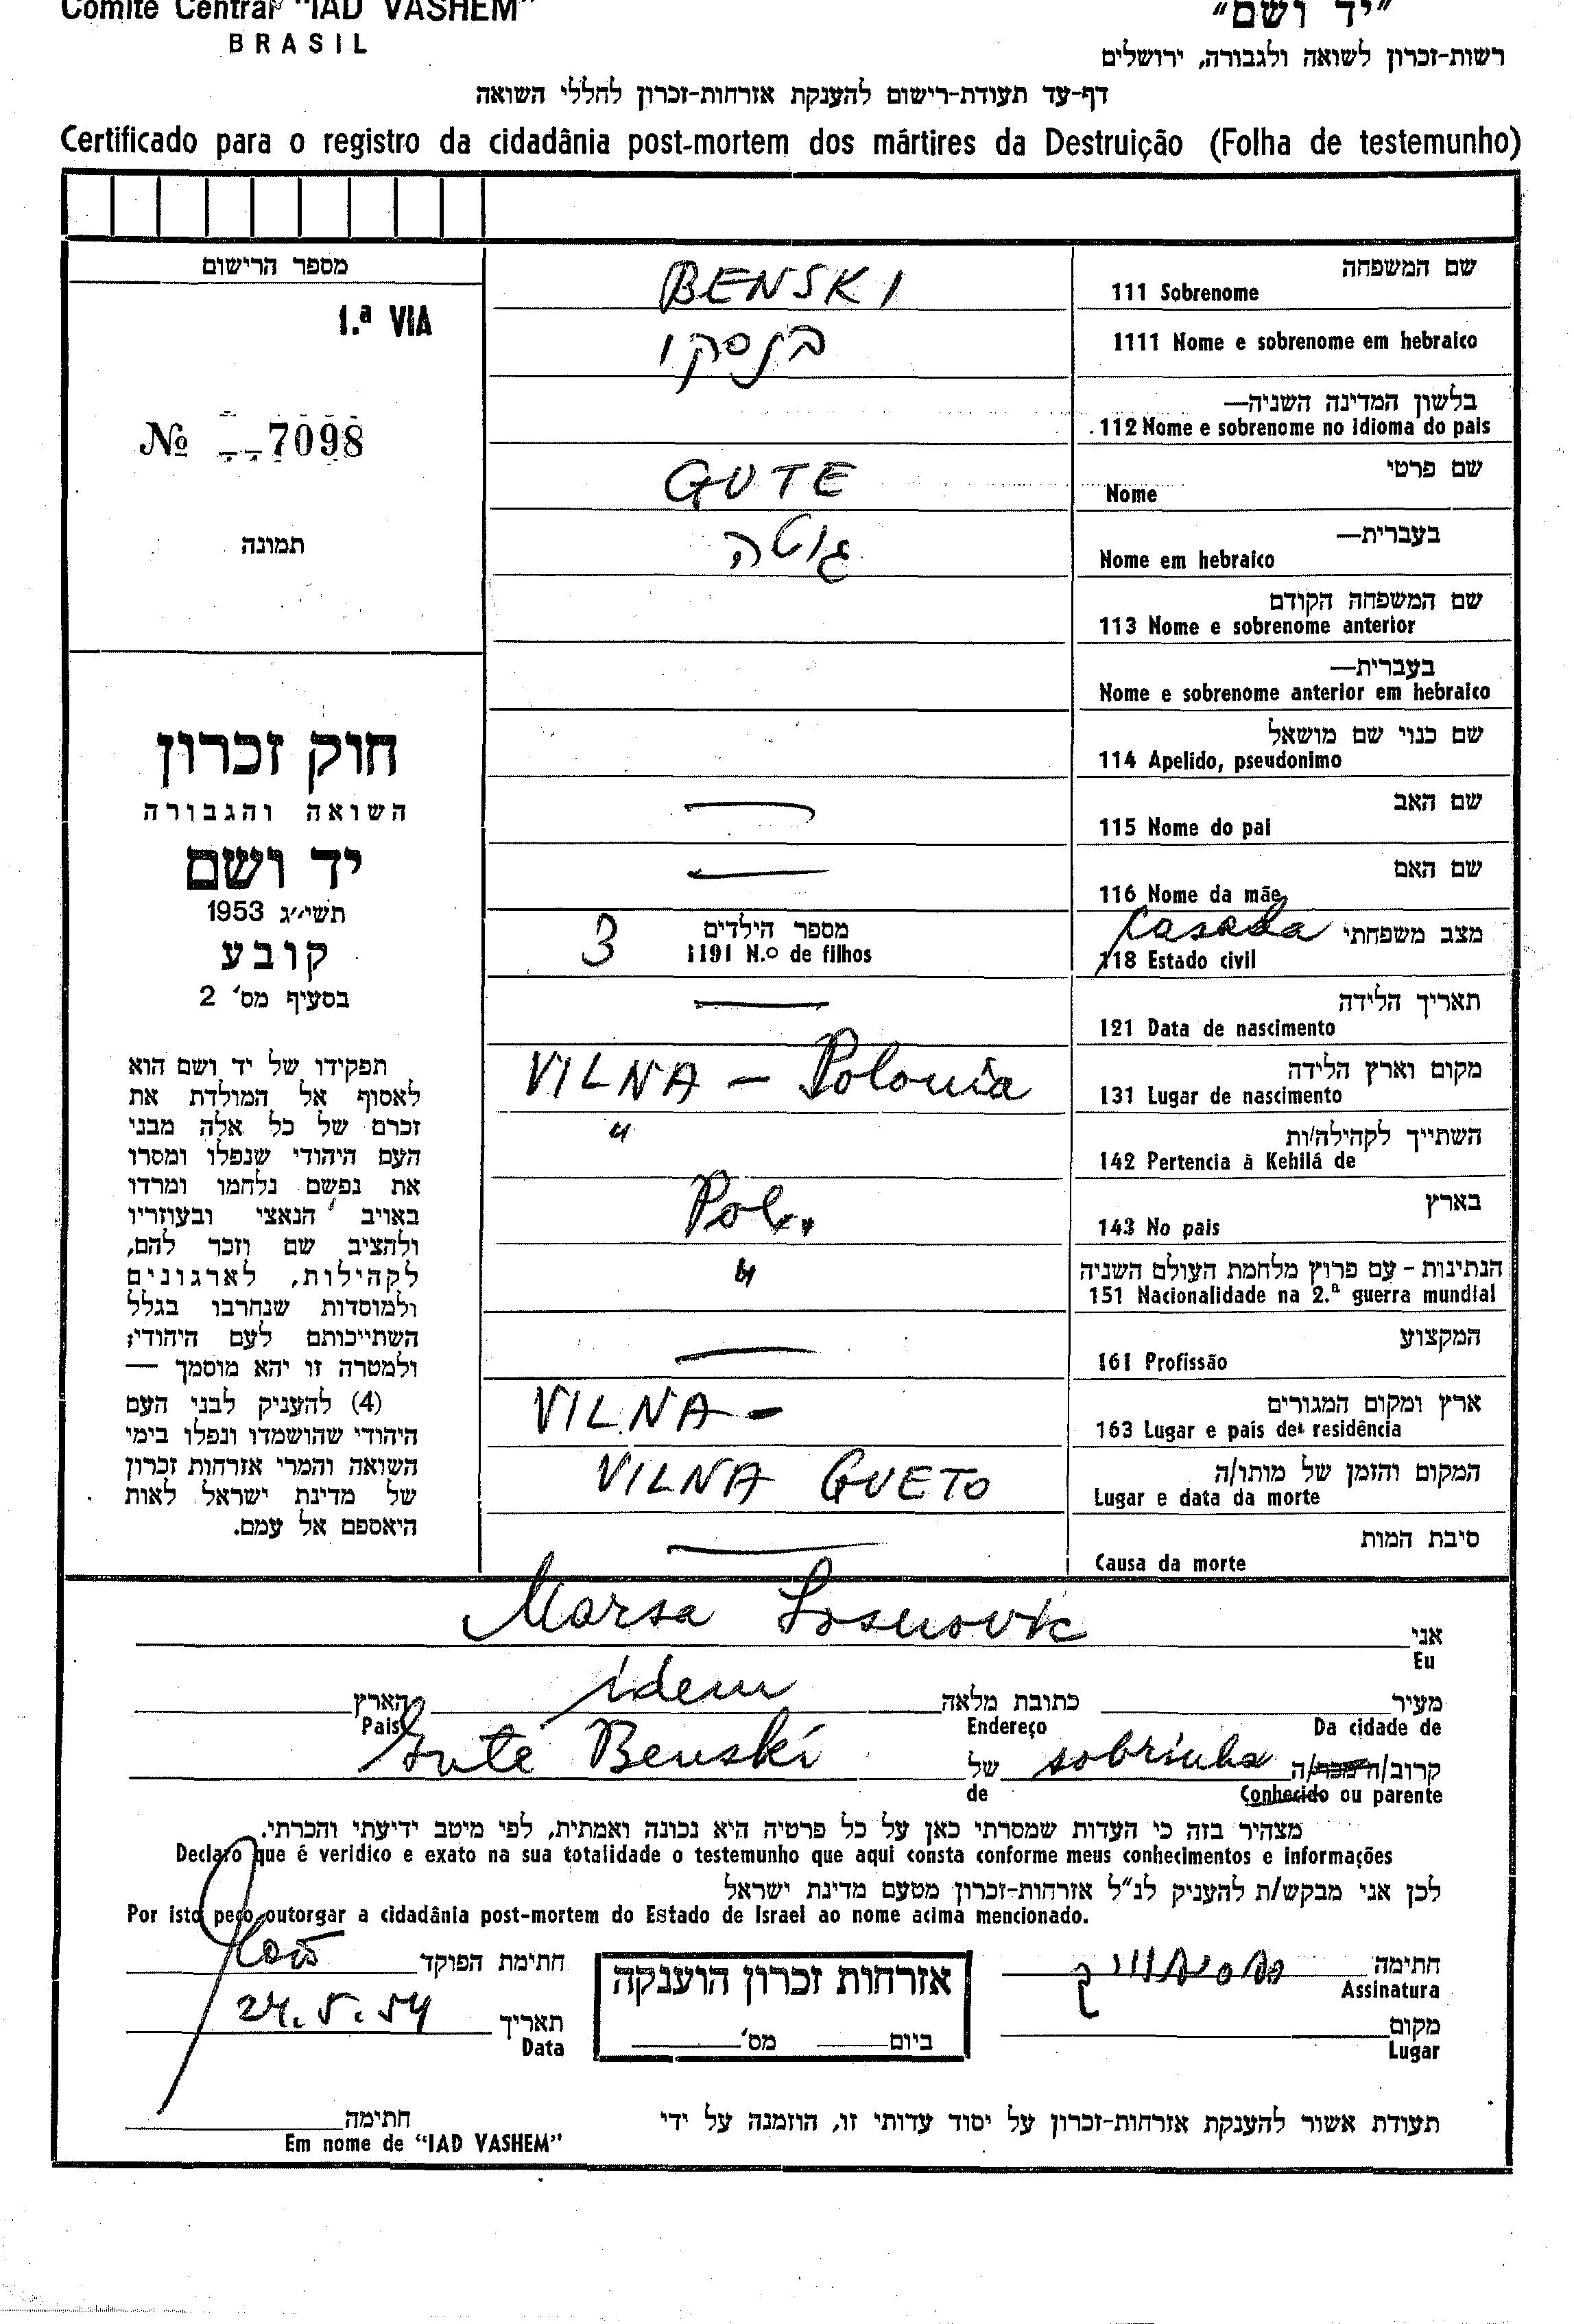 Comité Central "IAD VASHEM"
BRASIL
"יד ושם"
רשות-זכרון לשואה ולגבורה, ירושלים
דף-עד תעודת-רישום להענקת אזרחות-זכרון לחללי השואה
Certificado para o registro da cidadânia post-mortem dos mártires da Destruição (Folha de testemunho)
מספר הרישום
1.ª VIA
Nº 7098
תמונה
חוק זכרון
השואה והגבורה
יד ושם
תשי״ג 1953
קובע
בסעיף מס' 2
תפקידו של יד ושם הוא
לאסוף אל המולדת את
זכרם של כל אלה מבני
העם היהודי שנפלו ומסרו
את נפשם נלחמו ומרדו
באויב הנאצי ובעוזריו
ולהציב שם וזכר להם,
לקהילות, לארגונים
ולמוסדות שנחרבו בגלל
השתייכותם לעם היהודי;
ולמטרה זו יהא מוסמך —
(4) להעניק לבני העם
היהודי שהושמדו ונפלו בימי
השואה והמרי אזרחות זכרון
של מדינת ישראל לאות
היאספם אל עמם.
שם המשפחה
111 Sobrenome BENSKI
1111 Nome e sobrenome em hebraico בנסקי
בלשון המדינה השניה—
112 Nome e sobrenome no idioma do pais
שם פרטי
Nome GUTE
בעברית—
Nome em hebraico גוטה
שם המשפחה הקודם
113 Nome e sobrenome anterior
בעברית—
Nome e sobrenome anterior em hebraico
שם כנוי שם מושאל
114 Apelido, pseudonimo
שם האב
115 Nome do pai —
שם האם
116 Nome da mãe —
מצב משפחתי casada
118 Estado civil
מספר הילדים
1191 N.º de filhos 3
תאריך הלידה
121 Data de nascimento —
מקום וארץ הלידה
131 Lugar de nascimento VILNA - Polonia
השתייך לקהילה/ות
142 Pertencia à Kehilá de "
בארץ
143 No pais Pol.
הנתינות - עם פרוץ מלחמת העולם השניה
151 Nacionalidade na 2.ª guerra mundial "
המקצוע
161 Profissão —
ארץ ומקום המגורים
163 Lugar e pais de residência VILNA -
המקום והזמן של מותו/ה
Lugar e data da morte VILNA GUETO
סיבת המות
Causa da morte —
אני
Eu Marsa Sosnovik
מעיר כתובת מלאה idem הארץ
Da cidade de Endereço Pais
קרוב/ה מכר/ה sobrinha של Gute Benski
Conhecido ou parente de
מצהיר בזה כי העדות שמסרתי כאן על כל פרטיה היא נכונה ואמתית, לפי מיטב ידיעתי והכרתי.
Declaro que é veridico e exato na sua totalidade o testemunho que aqui consta conforme meus conhecimentos e informações
לכן אני מבקש/ת להעניק לנ"ל אזרחות-זכרון מטעם מדינת ישראל
Por isto peço outorgar a cidadânia post-mortem do Estado de Israel ao nome acima mencionado.
חתימה
Assinatura
חתימת הפוקד
מקום
Lugar
אזרחות זכרון הוענקה
ביום מס'
תאריך 24.5.54
Data
תעודת אשור להענקת אזרחות-זכרון על יסוד עדותי זו, הוזמנה על ידי
חתימה
Em nome de "IAD VASHEM"